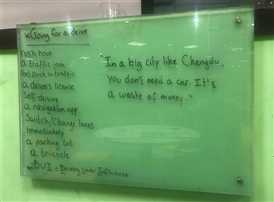 Going for a drive
rush hour
a traffic jam
be stuck in traffic
a driver's license
Self-driving
a navigation app
Switch/Change lanes
immediately
a parking lot
a tricycle
DUI = Driving Under Influence
"In a big city like Chengdu,
You don't need a car. It's
a waste of money."